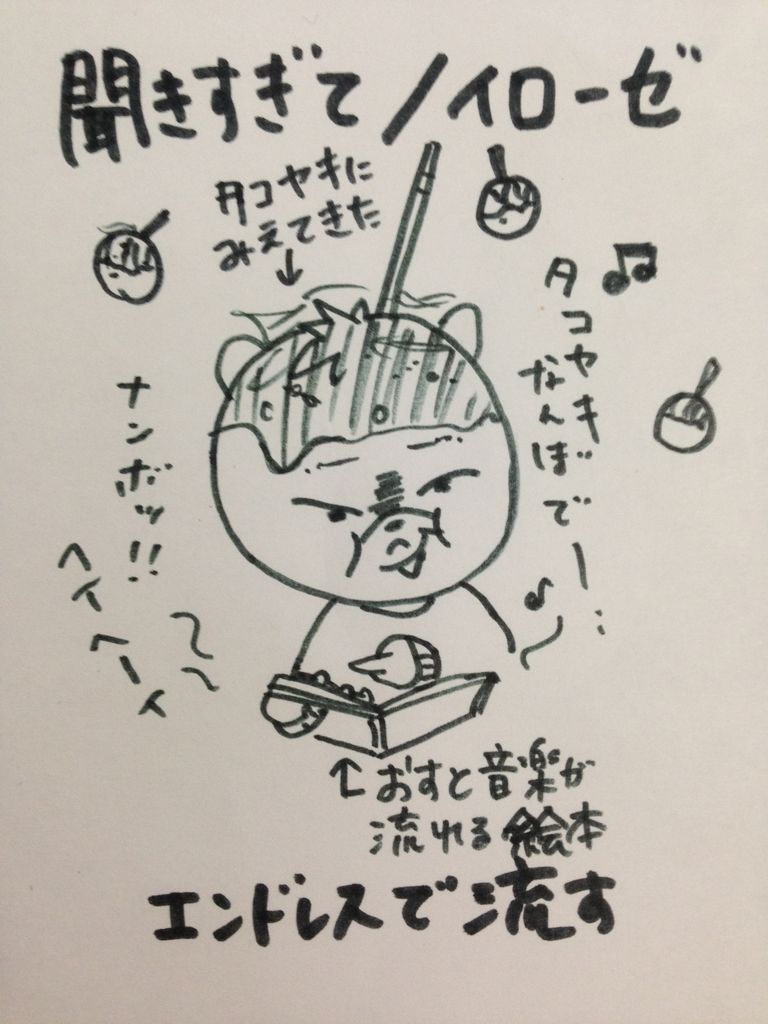 聞きすぎてノイローゼ
タコヤキに
みえてきた
タコヤキ
なんばでー:
ナンボッ!!
ヘイ
ヘーイ
おすと音楽が
流れる絵本
エンドレスで流す